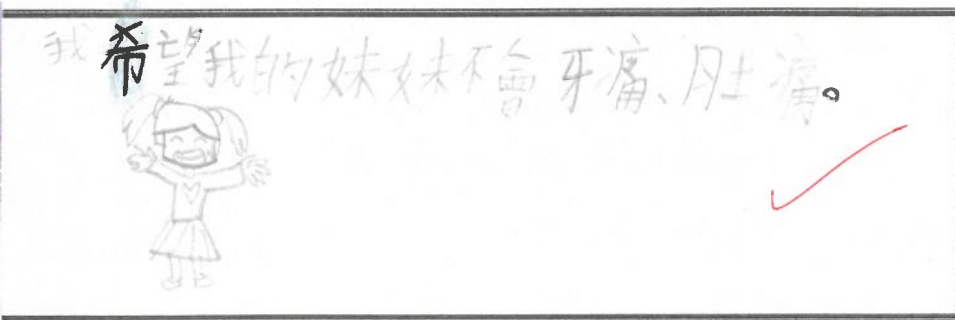 我希望我的妹妹不會牙痛、肚痛。